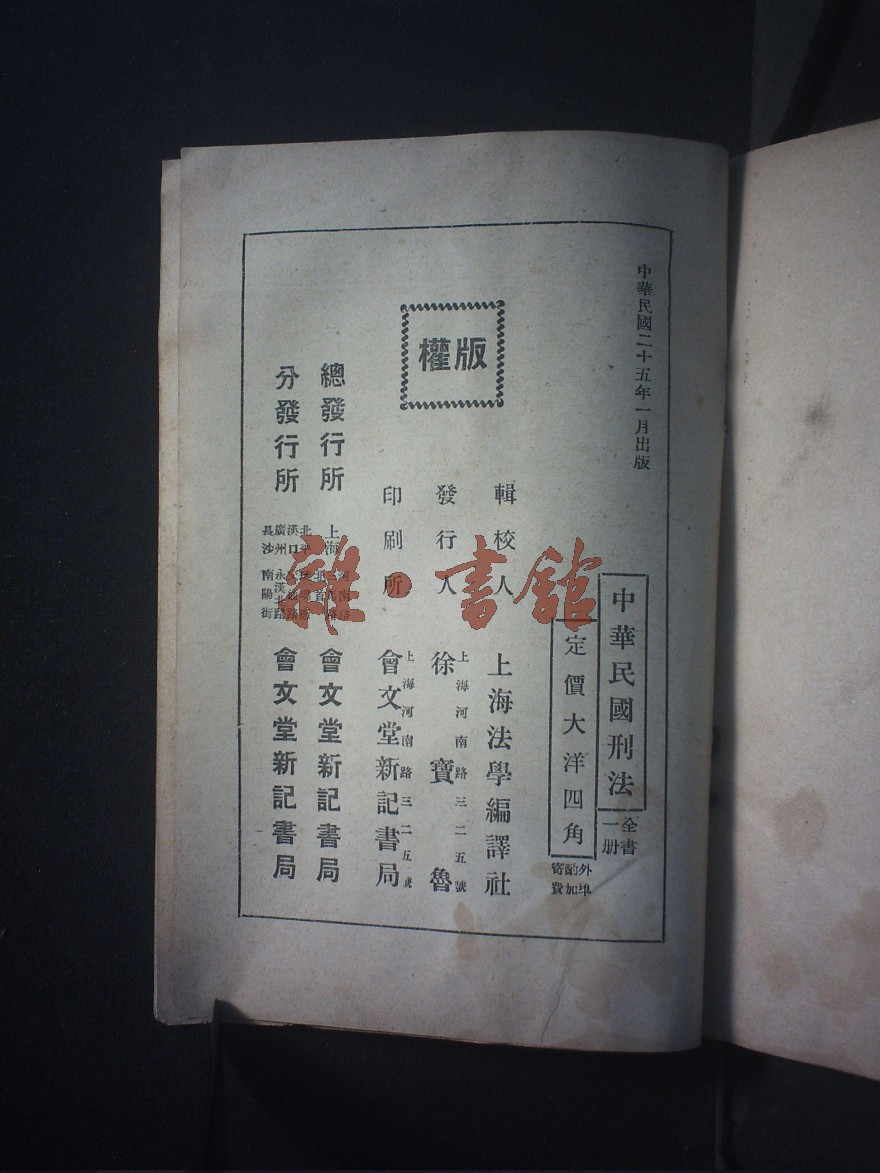 中華民國二十五年一月出版
中華民國刑法
全書
一册
定價大洋四角
外埠
酌加
寄費
輯校人 上海法學編譯社
發行人 徐寶魯
上海河南路三二五號
印刷所 會文堂新記書局
上海河南路三二五號
版權
總發行所 上海 會文堂新記書局
分發行所 北平 漢口 廣州 長沙 永漢北路 南陽街 會文堂新記書局
雜·書館